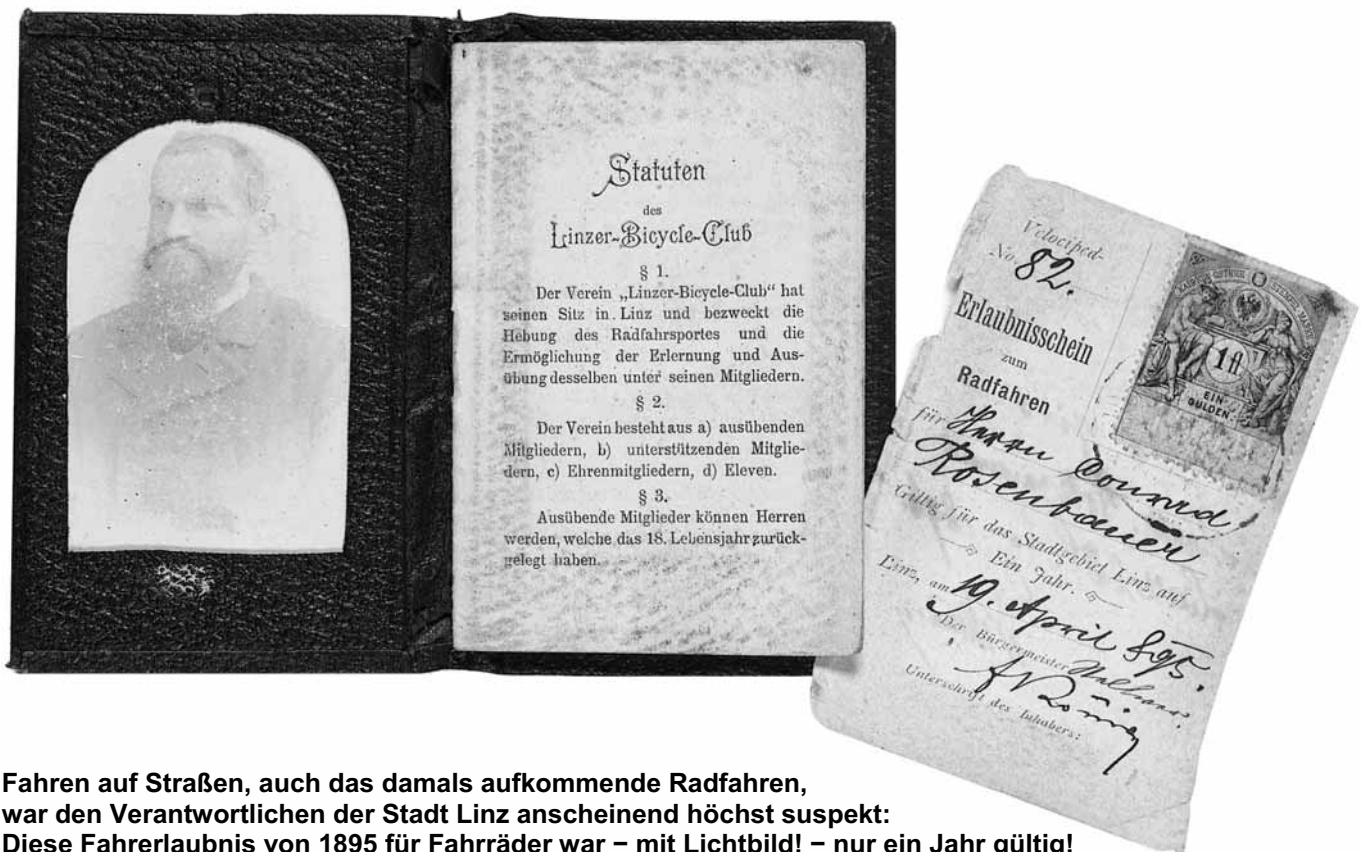 Statuten
des
Linzer-Bicycle-Club
§ 1.
Der Verein „Linzer-Bicycle-Club“ hat
seinen Sitz in Linz und bezweckt die
Hebung des Radfahrsportes und die
Ermöglichung der Erlernung und Aus-
übung desselben unter seinen Mitgliedern.
§ 2.
Der Verein besteht aus a) ausübenden
Mitgliedern, b) unterstützenden Mitglie-
dern, c) Ehrenmitgliedern, d) Eleven.
§ 3.
Ausübende Mitglieder können Herren
werden, welche das 18. Lebensjahr zurück-
gelegt haben.
Velociped-
No. 82.
Erlaubnisschein
zum
Radfahren
für Herrn Conrad
Rosenbauer
Giltig für das Stadtgebiet Linz auf
Ein Jahr.
Linz, am 19. April 895.
Der Bürgermeister
Unterschrift des Inhabers:
1 fl
EIN
GULDEN
Fahren auf Straßen, auch das damals aufkommende Radfahren,
war den Verantwortlichen der Stadt Linz anscheinend höchst suspekt:
Diese Fahrerlaubnis von 1895 für Fahrräder war – mit Lichtbild! – nur ein Jahr gültig!